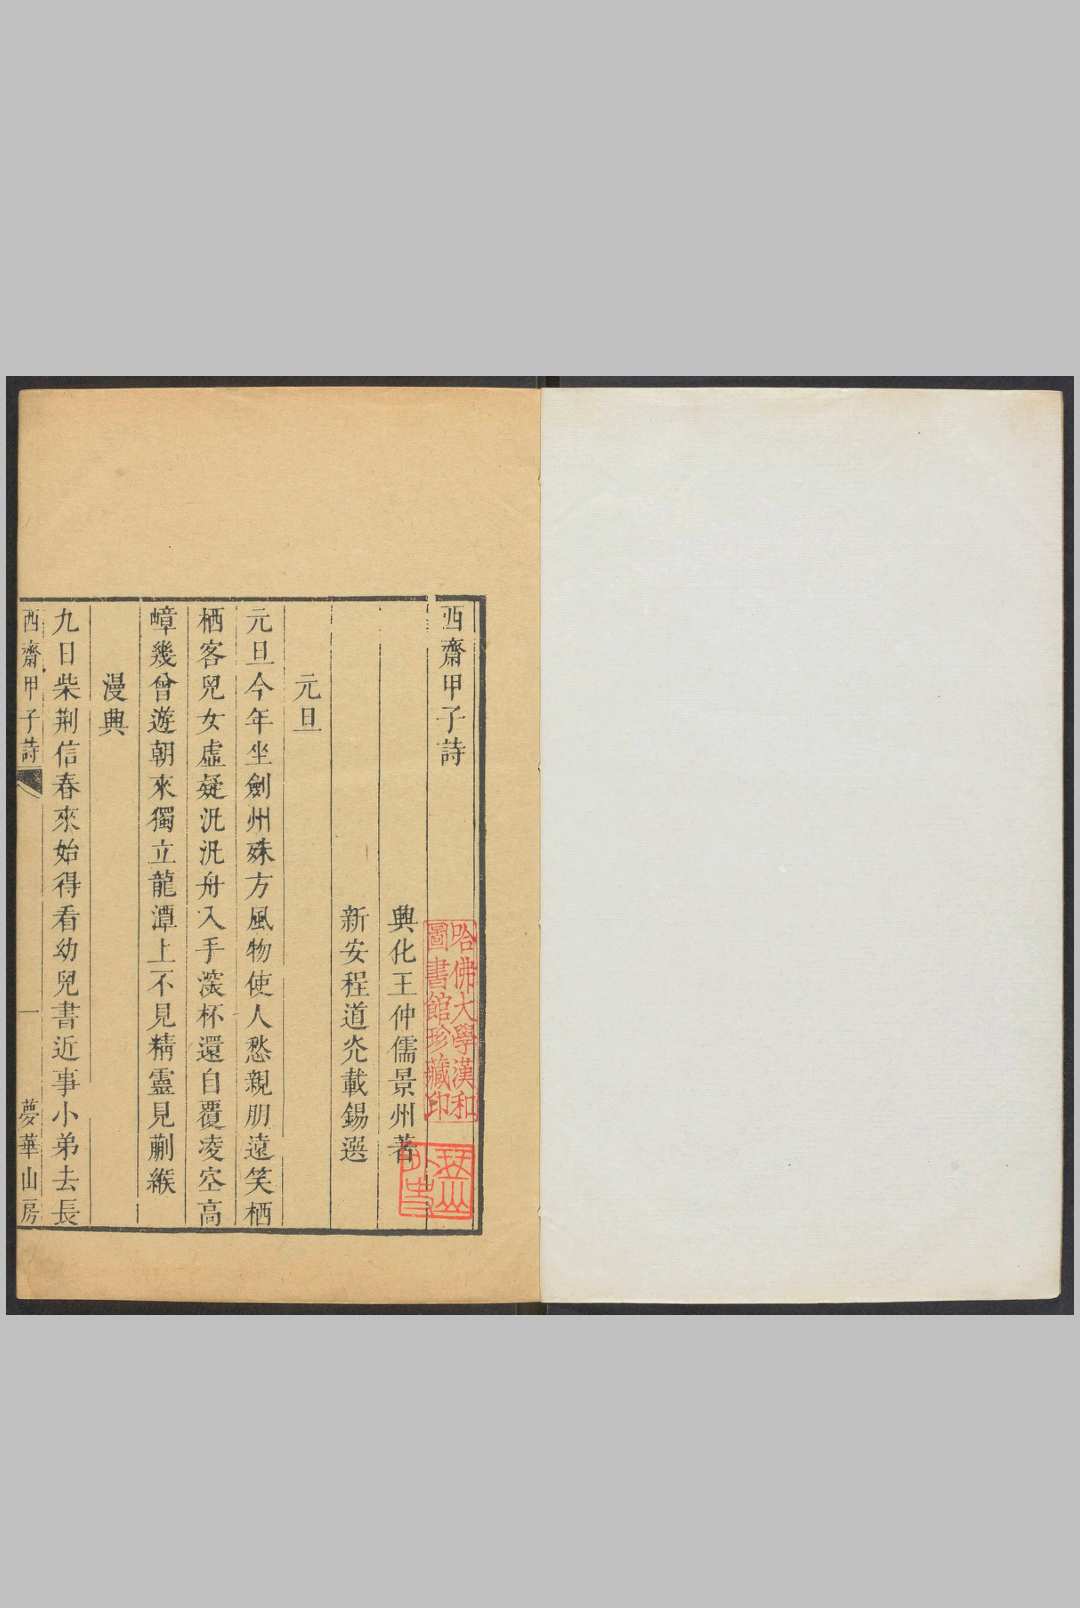 西齋甲子詩
興化王仲儒景州著
新安程道光載錫選
元旦
元旦今年坐劍州殊方風物使人愁親朋遠笑栖
栖客兒女虛疑汎汎舟入手深杯還自覆凌空高
嶂幾曾遊朝來獨立龍潭上不見精靈見蒯緱
漫興
九日柴荆信春來始得看幼兒書近事小弟去長
西齋甲子詩
一
夢華山房
哈佛大學漢和
圖書館珍藏印